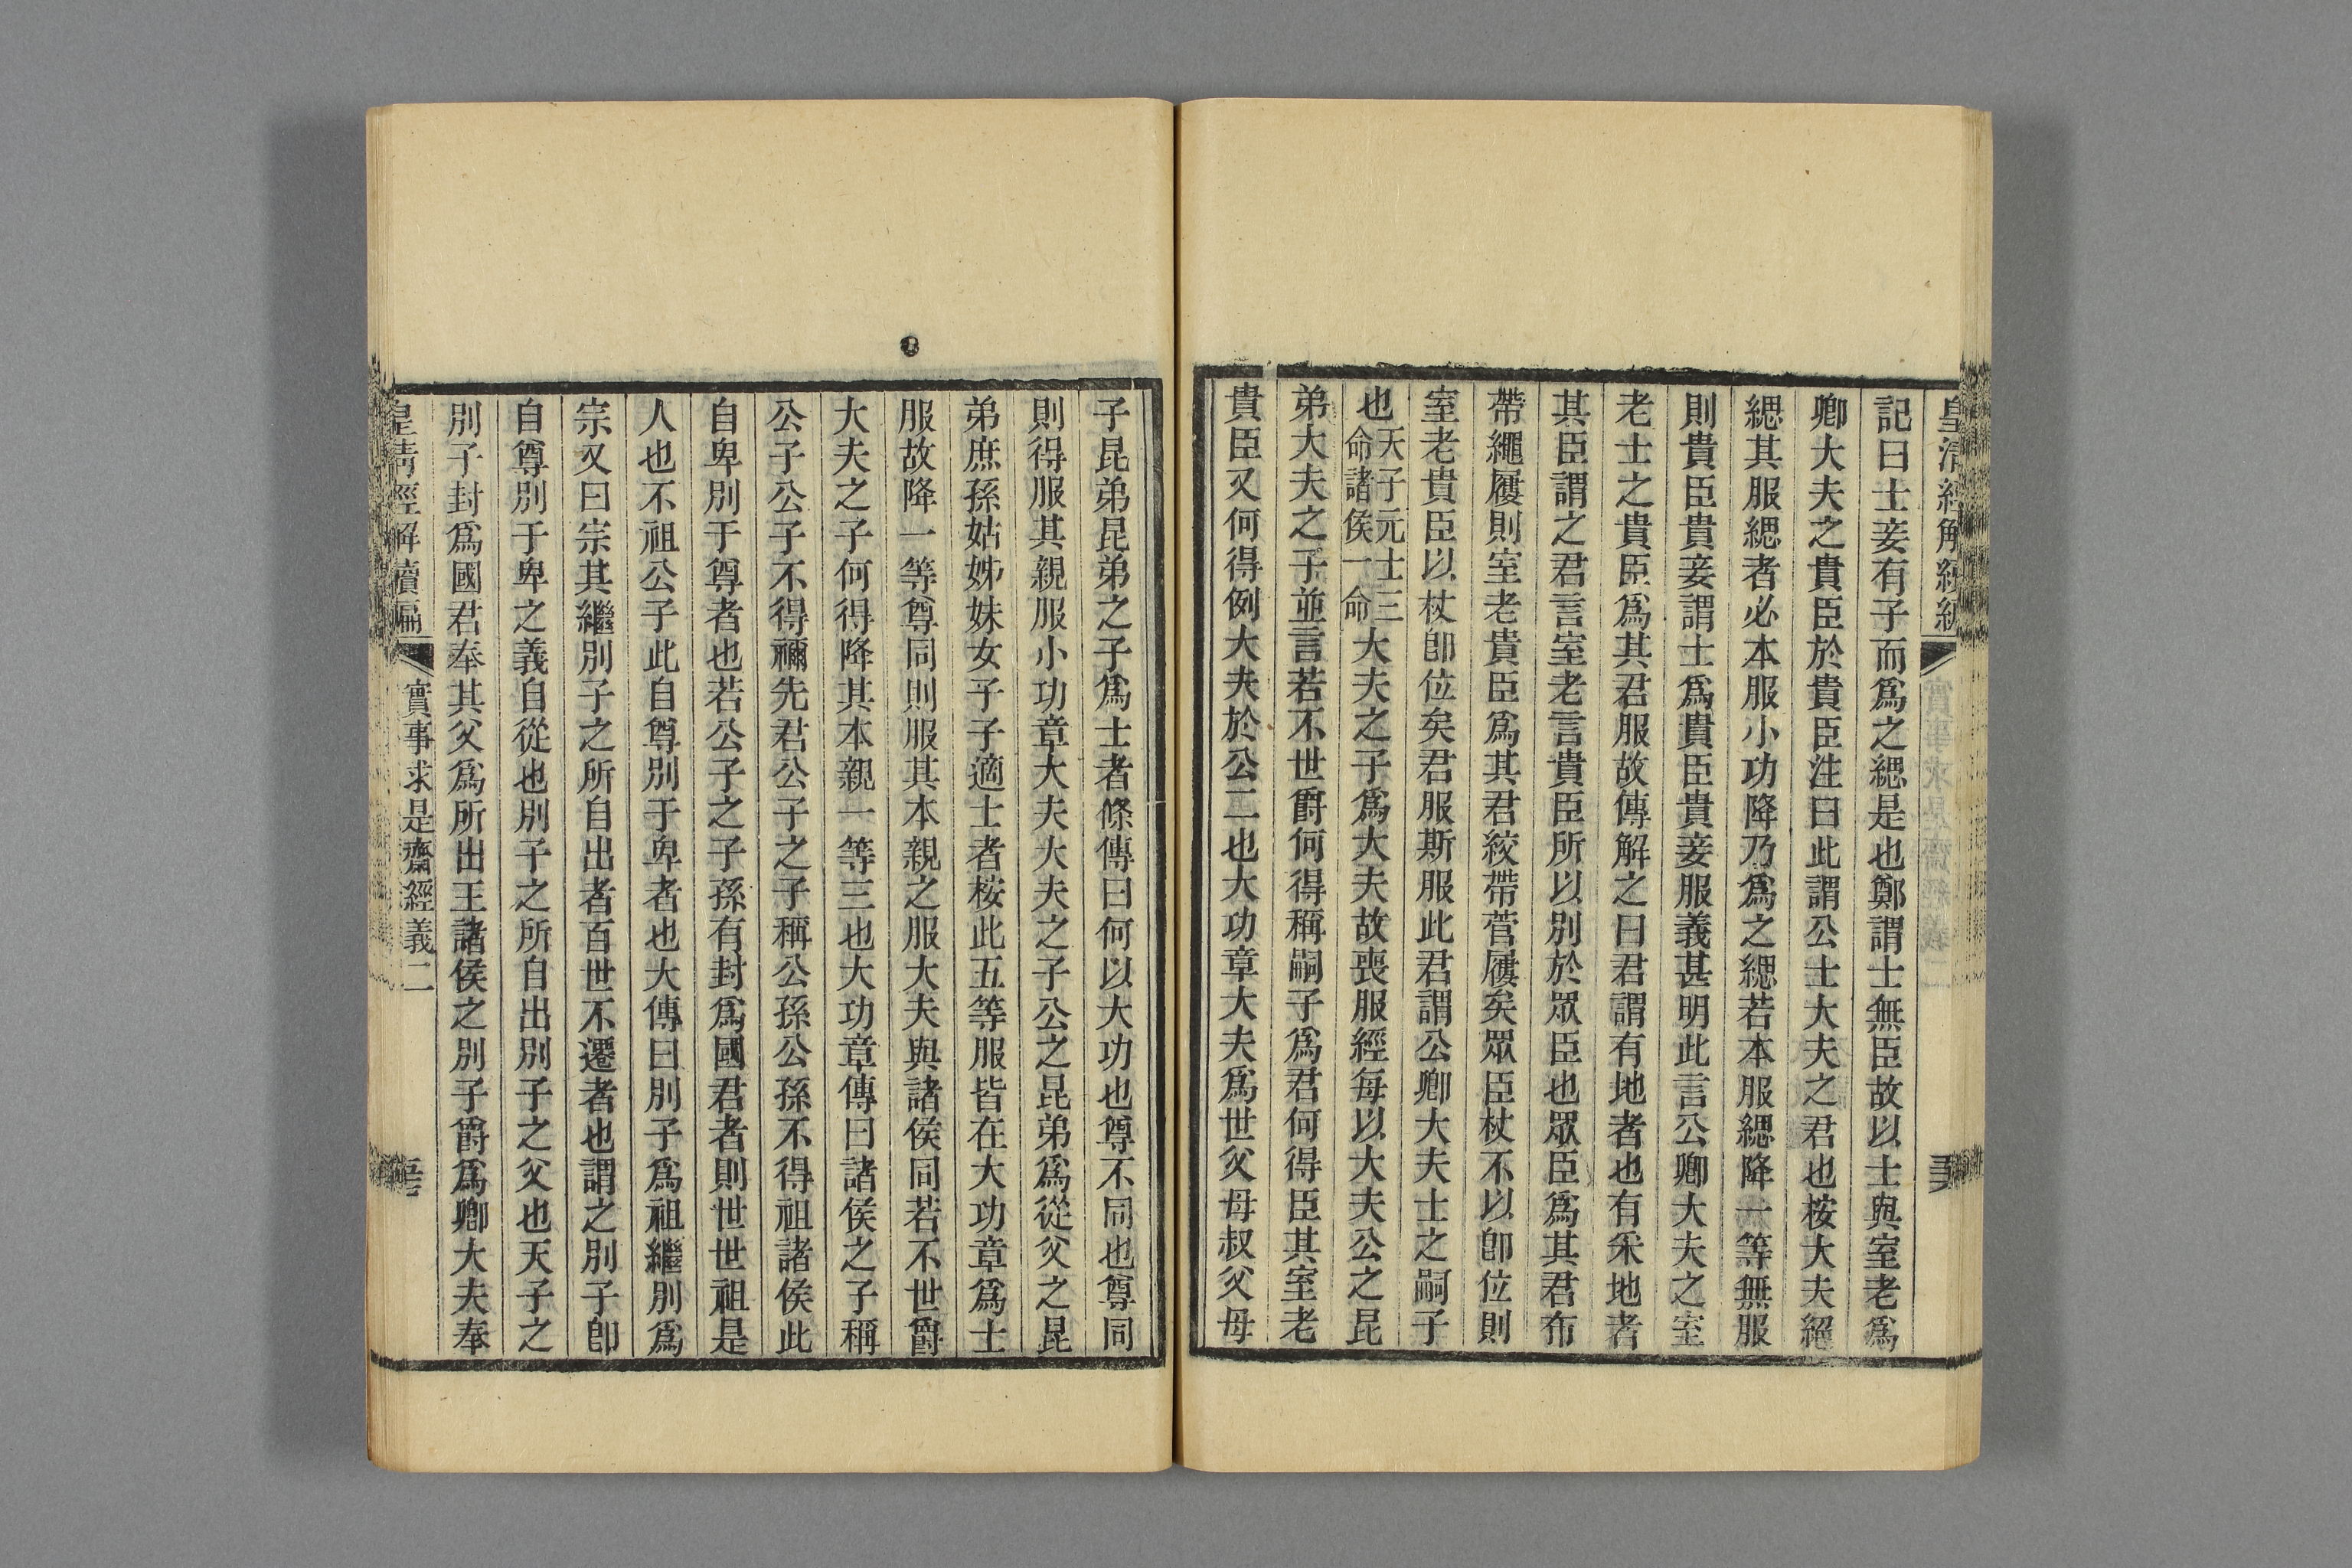 皇清經解續編
記曰士妾有子而爲之緦是也鄭謂士無臣故以士與室老爲
卿大夫之貴臣於貴臣注曰此謂公士大夫之君也桉大夫絕
緦其服緦者必本服小功降乃爲之緦若本服緦降一等無服
則貴臣貴妾謂士爲貴臣貴妾服義甚明此言公卿大夫之室
老士之貴臣爲其君服故傳解之曰君謂有地者也有采地者
其臣謂之君言室老言貴臣所以別於眾臣也眾臣爲其君布
帶繩屨則室老貴臣爲其君絞帶菅屨矣眾臣杖不以卽位則
室老貴臣以杖卽位矣君服斯服此君謂公卿大夫士之嗣子
也天子元士三命諸侯一命大夫之子爲大夫故喪服經每以大夫公之昆
弟大夫之子並言若不世爵何得稱嗣子爲君何得臣其室老
貴臣又何得例大夫於公二也大功章大夫爲世父母叔父母
子昆弟昆弟之子爲士者條傳曰何以大功也尊不同也尊同
則得服其親服小功章大夫大夫之子公之昆弟爲從父之昆
弟庶孫姑姊妹女子子適士者桉此五等服皆在大功章爲士
服故降一等尊同則服其本親之服大夫與諸侯同若不世爵
大夫之子何得降其本親一等三也大功章傳曰諸侯之子稱
公子公子不得禰先君公子之子稱公孫公孫不得祖諸侯此
自卑別于尊者也若公子之子孫有封爲國君者則世世祖是
人也不祖公子此自尊別于卑者也大傳曰別子爲祖繼別爲
宗又曰宗其繼別子之所自出者百世不遷者也謂之別子卽
自尊別于卑之義自從也別子之所自出別子之父也天子之
別子封爲國君奉其父爲所出王諸侯之別子爵爲卿大夫奉
皇清經解續編 實事求是齋經義二